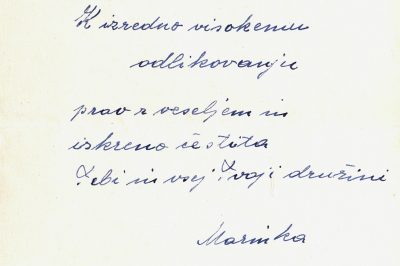 K izredno visokemu
odlikovanju
prav z veseljem in
iskreno čestita
Tebi in vsej Tvoji družini
Marinka